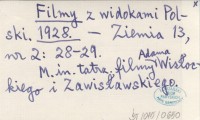 Filmy z widokami Pol-
ski. 1928. — Ziemia 13,
nr 2: 28-29.
M. in. tatrz. filmy Adama Wisłoc-
kiego i Zawisławskiego.